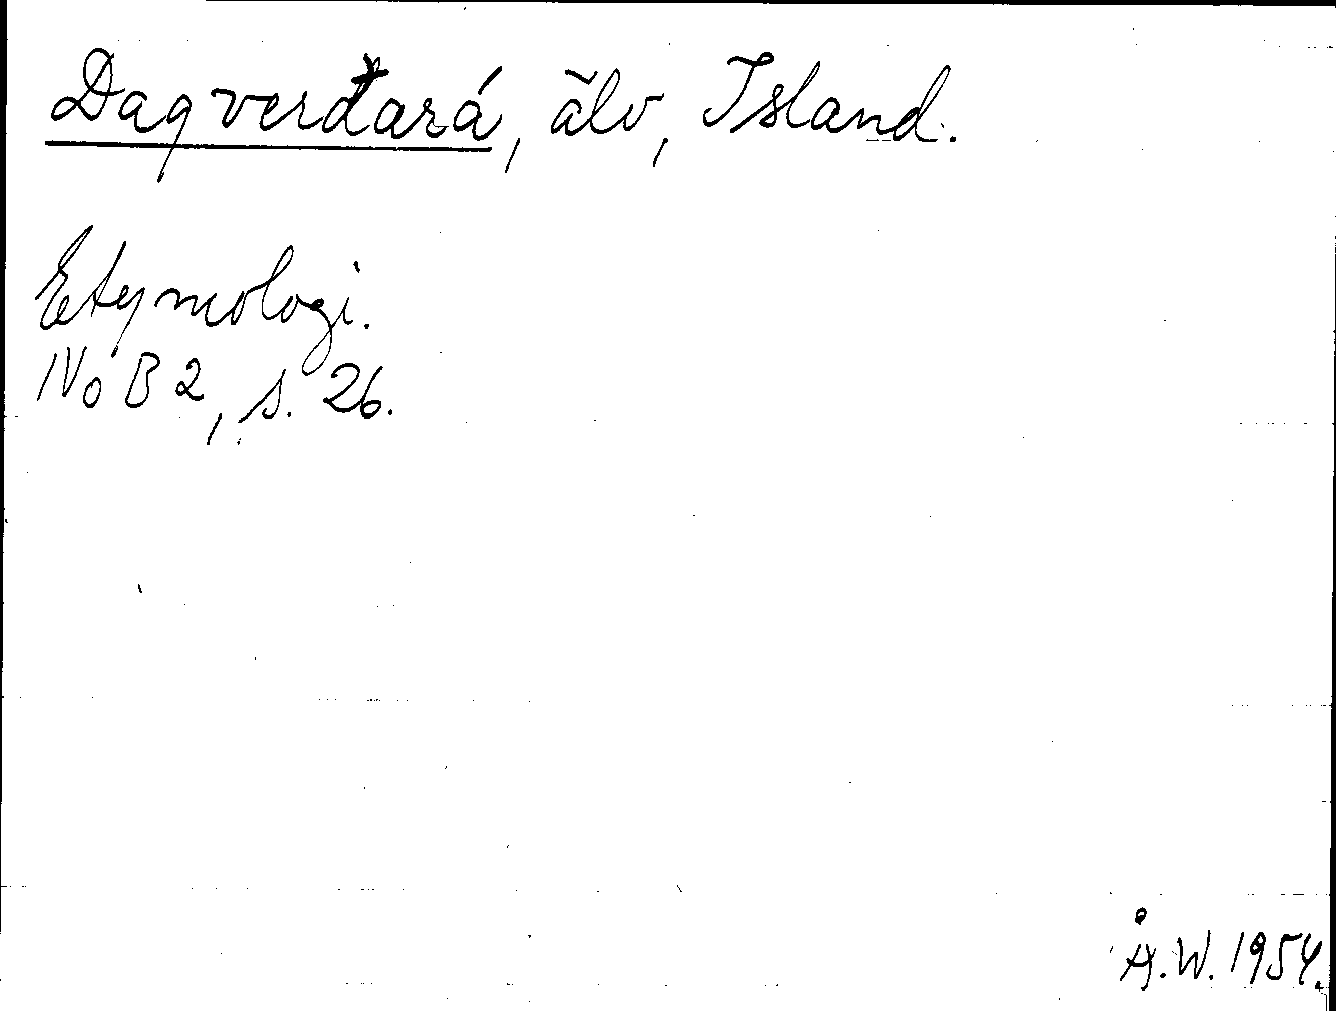 Dagverðará, älv, Island.
Etymologi.
NoB 2, s. 26.
Å.W. 1954.